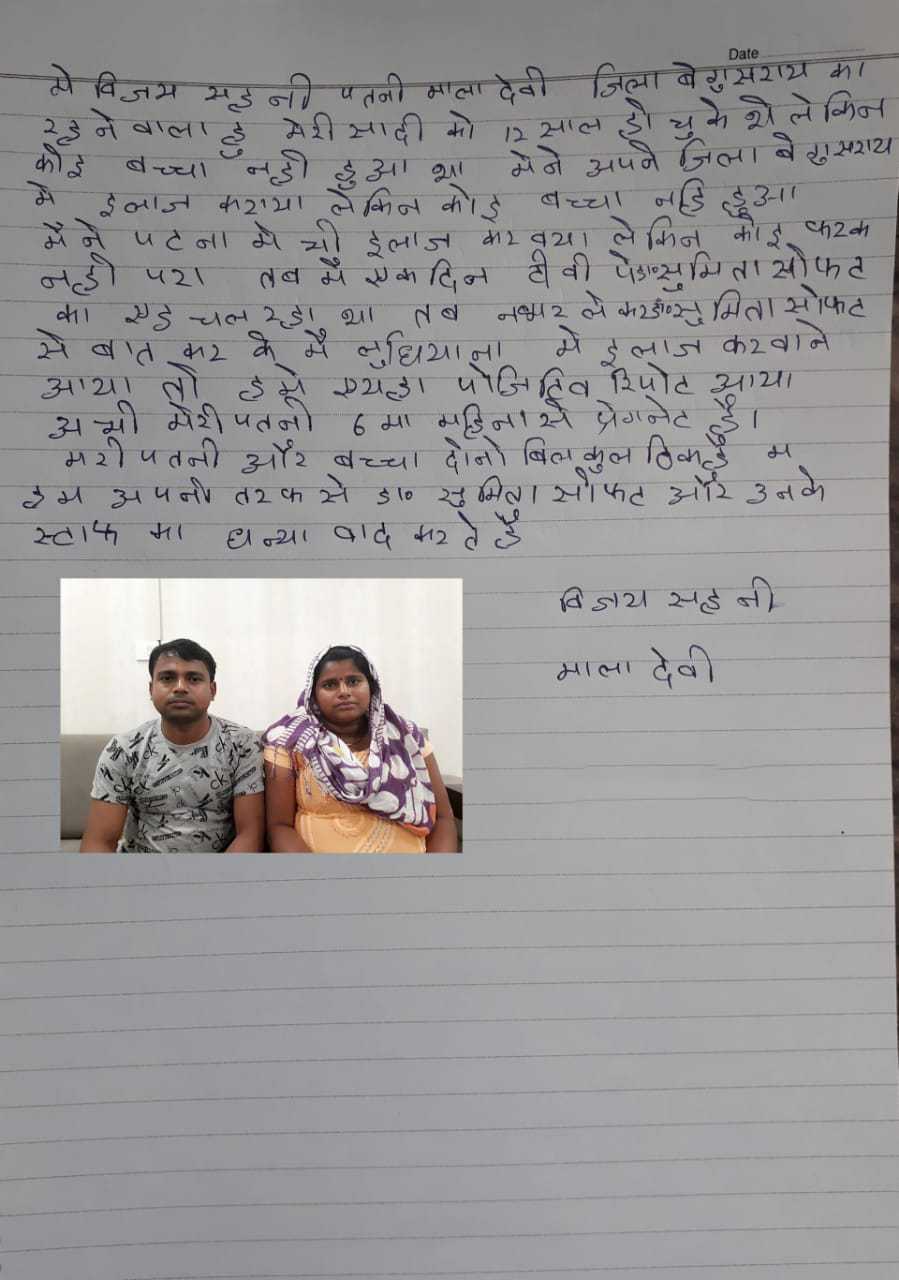 Date
मे विजय सहनी पतनी माला देवी जिला बेगुसराय का
रहने वाला हु मेरी सादी को 12 साल हो चुके थे लेकिन
कोइ बच्चा नही हुआ था मेने अपने जिला बेगुसराय
मे इलाज कराया लेकिन कोइ बच्चा नहि हुआ
मैने पटना मे भी इलाज करवया लेकिन कोइ फरक
नही परा तब मै एक दिन टीवी पे डा॰ सुमिता सोफट
का एड चल रहा था तब नम्बर लेकर डा॰ सुमिता सोफट
से बात कर के मै लुधियाना मे इलाज करवाने
आया तो हमे पोजिटिव रिपोट आया
अभी मेरी पतनी 6 मा महिना से प्रेगनेट है।
मरी पतनी और बच्चा दोनो बिलकुल ठिक है म
हम अपनी तरफ से डा॰ सुमिता सोफट और उनके
स्टाफ का धन्या वाद करते है
विजय सहनी
माला देवी